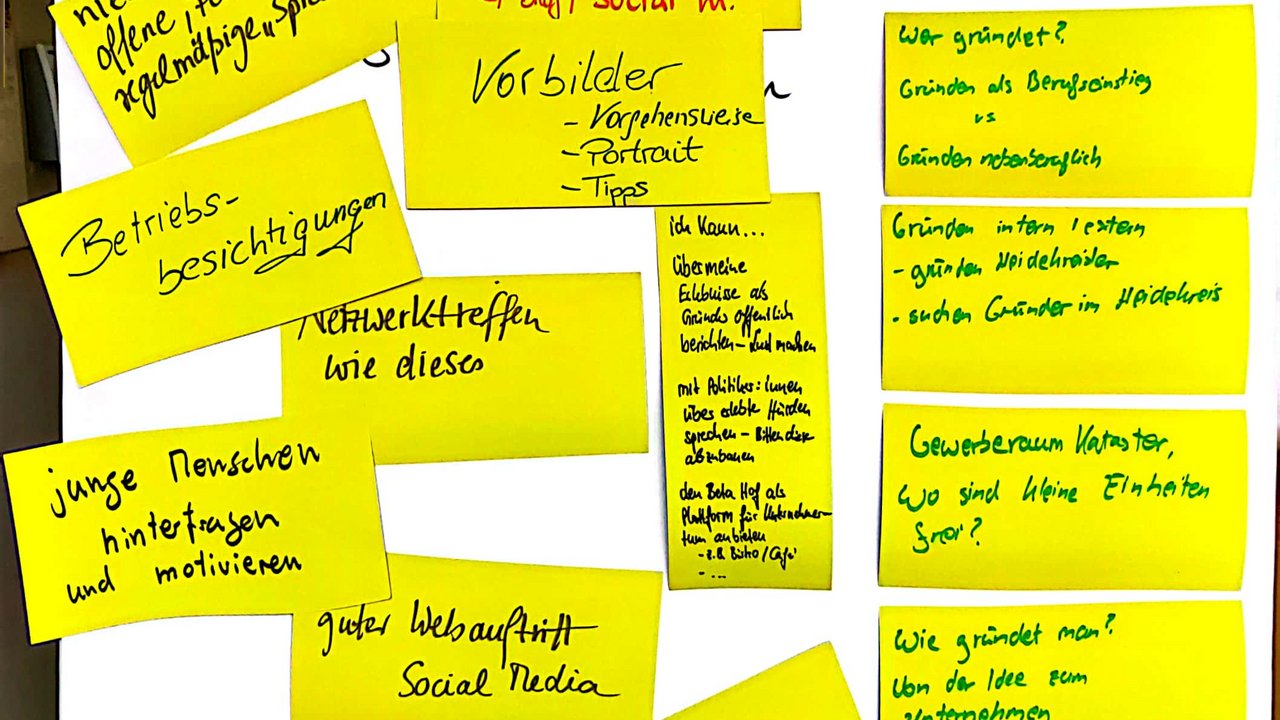 offene
regelmäßige
social m.
Vorbilder
- Vorgehensweise
- Portrait
- Tipps
Betriebs-
besichtigungen
Netzwerktreffen
wie dieses
junge Menschen
hinterfragen
und motivieren
guter Webauftritt
Social Media
ich kann...
über meine
Erlebnisse als
Gründer öffentlich
berichten - Lust machen
mit Politiker:innen
über erlebte Hürden
sprechen - Bitten diese
abzubauen
den Beta Hof als
Plattform für Unternehmer-
tum anbieten
- z.B. Bistro / Café
- ...
Wer gründet?
Gründen als Berufseinstieg
vs
Gründen nebenberuflich
Gründen intern / extern
- gründen Heidekreisler
- suchen Gründer im Heidekreis
Gewerberaum Kataster,
wo sind kleine Einheiten
frei?
Wie gründet man?
Von der Idee zum
Unternehmen